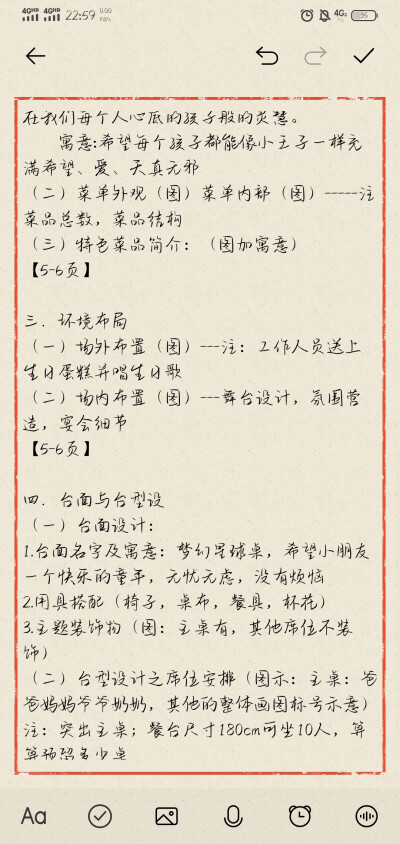 22:59
在我们每个人心底的孩子般的灵慧。
寓意:希望每个孩子都能像小王子一样充
满希望、爱、天真无邪
（二）菜单外观（图）菜单内部（图）-----注
菜品总数，菜品结构
（三）特色菜品简介：（图加寓意）
【5-6页】
三．环境布局
（一）场外布置（图）---注：工作人员送上
生日蛋糕并唱生日歌
（二）场内布置（图）---舞台设计，氛围营
造，宴会细节
【5-6页】
四．台面与台型设
（一）台面设计：
1.台面名字及寓意：梦幻星球桌，希望小朋友
一个快乐的童年，无忧无虑，没有烦恼
2.用具搭配（椅子，桌布，餐具，杯花）
3.主题装饰物（图：主桌有，其他席位不装
饰）
（二）台型设计之席位安排（图示：主桌：爸
爸妈妈爷爷奶奶，其他的整体画图标号示意）
注：突出主桌；餐台尺寸180cm可坐10人，算
算预留多少桌
Aa